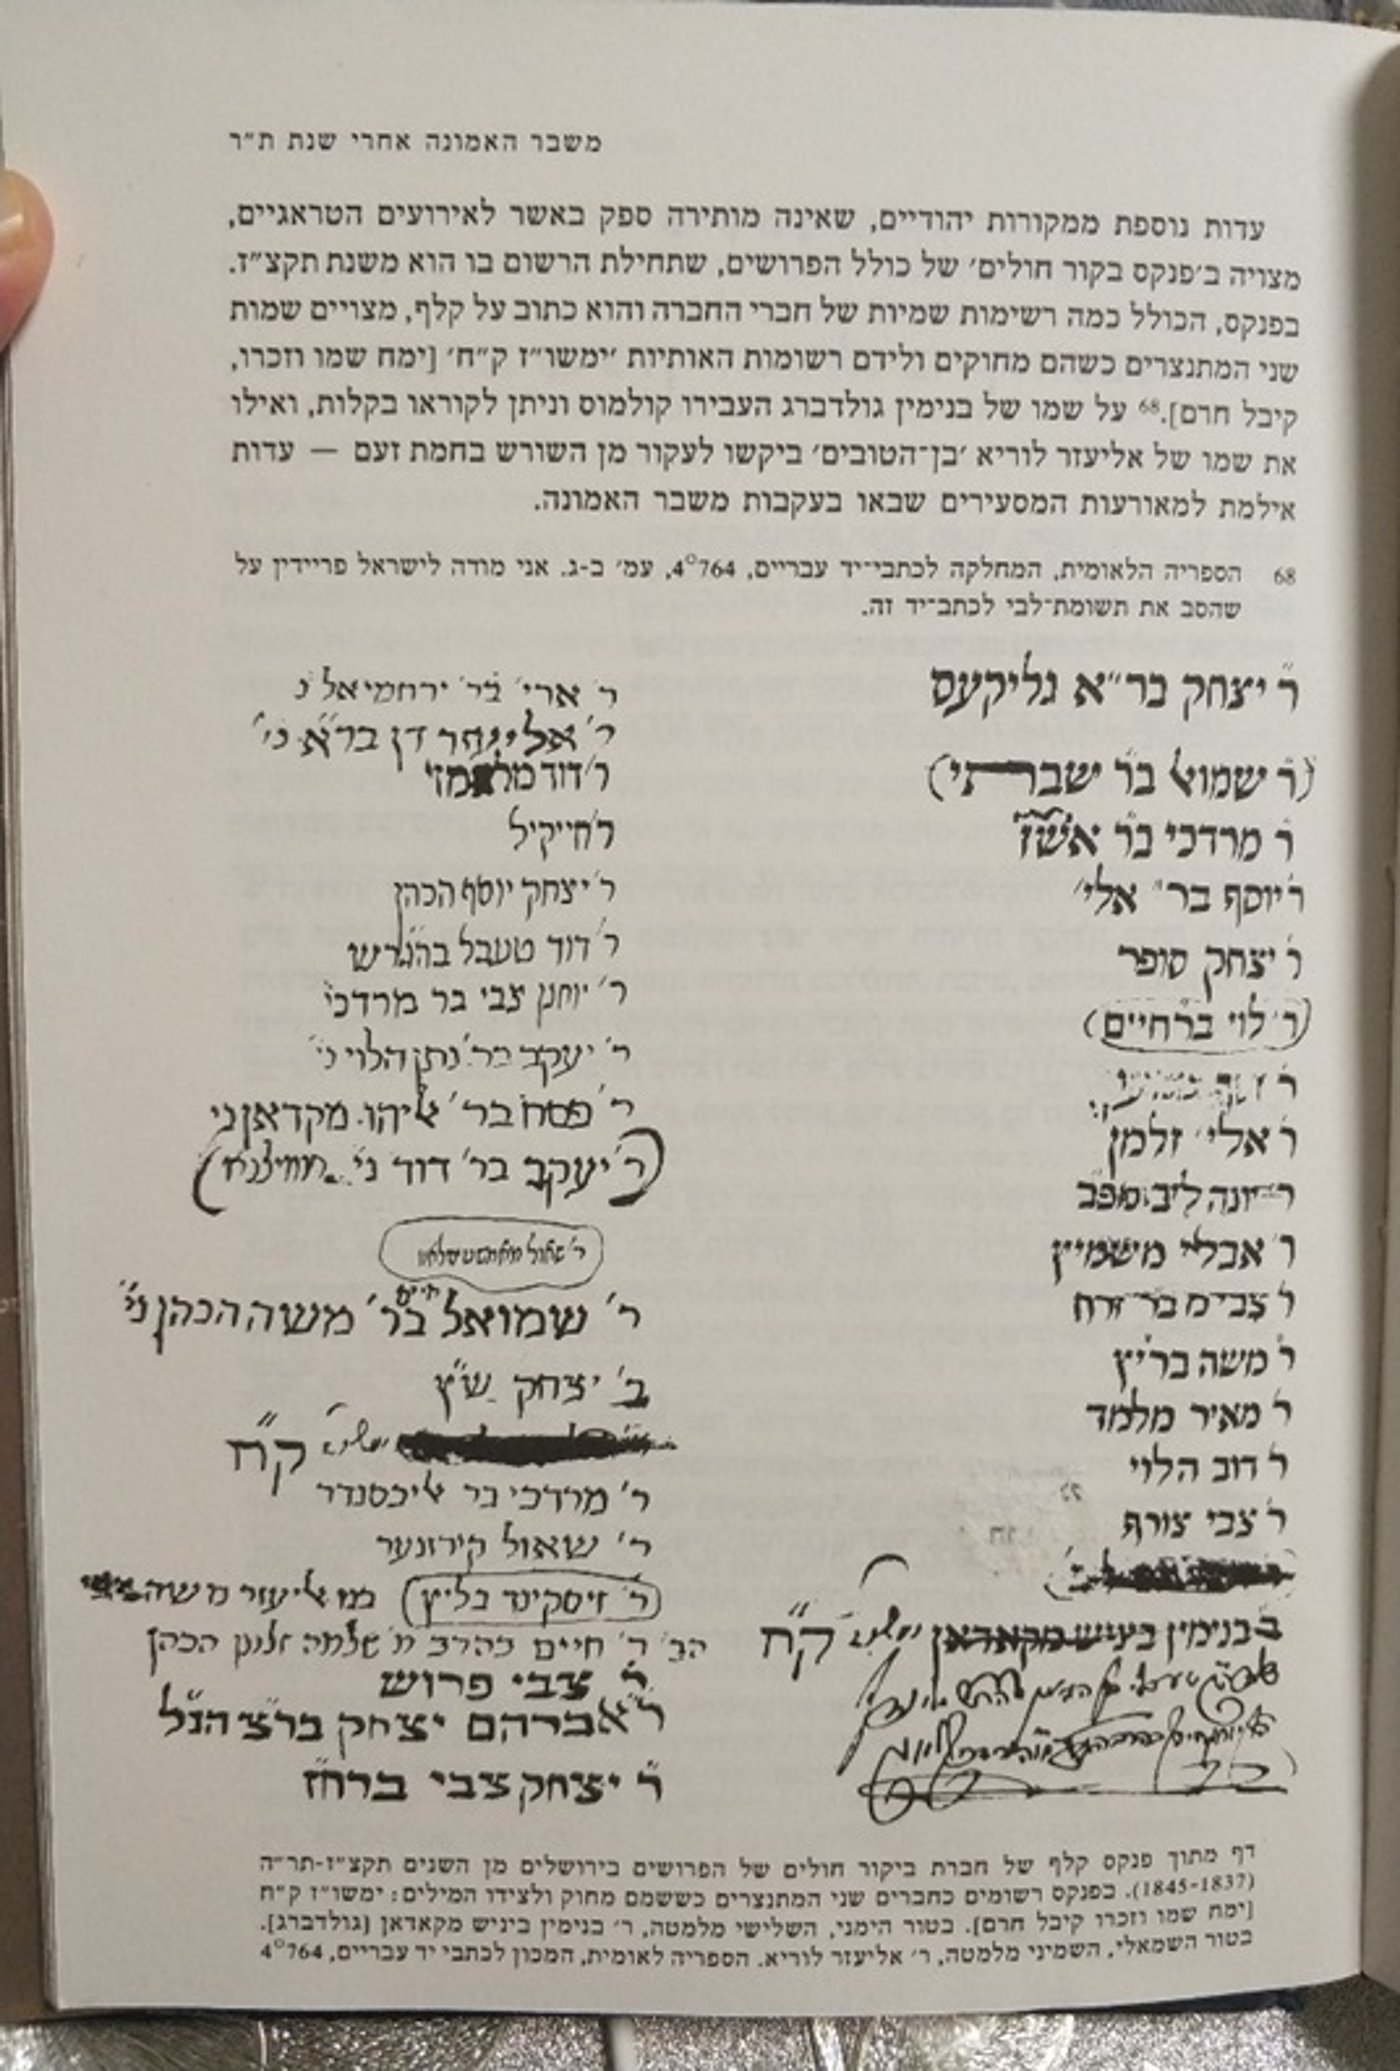 משבר האמונה אחרי שנת ת״ר
עדות נוספת ממקורות יהודיים, שאינה מותירה ספק באשר לאירועים הטראגיים,
מצויה ב׳פנקס בקור חולים׳ של כולל הפרושים, שתחילת הרשום בו הוא משנת תקצ״ז.
בפנקס, הכולל כמה רשימות שמיות של חברי החברה והוא כתוב על קלף, מצויים שמות
שני המתנצרים כשהם מחוקים ולידם רשומות האותיות ׳ימשו״ז ק״ח׳ [ימח שמו וזכרו,
קיבל חרם].68 על שמו של בנימין גולדברג העבירו קולמוס וניתן לקוראו בקלות, ואילו
את שמו של אליעזר לוריא ׳בן־הטובים׳ ביקשו לעקור מן השורש בחמת זעם — עדות
אילמת למאורעות המסעירים שבאו בעקבות משבר האמונה.
68 הספריה הלאומית, המחלקה לכתבי־יד עבריים, 4°764, עמ׳ ב-ג. אני מודה לישראל פריידין על
שהסב את תשומת־לבי לכתב־יד זה.
ר׳ יצחק בר״א גליקעס
(ר׳ שמואל בר׳ ישברתי)
ר׳ מרדכי בר׳
ר׳ יוסף בר׳ אלי׳
ר׳ יצחק סופר
(ר׳ לוי בר׳ חיים)
ר׳ אלי׳ זלמן
ר׳ יונה ליב
ר׳ אבלי משמיץ
ר׳ צבי
ר׳ משה בר״ץ
ר׳ מאיר מלמד
ר׳ דוב הלוי
ר׳ צבי צורף
בנימין מקאדאן ק״ח
ר׳ ארי׳ בר׳ ירחמיאל נ׳
ר׳ דן
ר׳ דוד
ר׳ חייקיל
ר׳ יצחק יוסף הכהן
ר׳ דוד טעבל
ר׳ יוחנן צבי בר מרדכי
ר׳ יעקב בר׳ נתן הלוי ני׳
ר׳ פסח בר׳ אליהו מקדאן ני׳
(ר׳ יעקב בר׳ דוד ני׳
ר׳ שאול
ר׳ שמואל חיים בר׳ משה הכהן ני׳
יצחק ש״ץ
ק״ח
ר׳ מרדכי בר אליכסנדר
ר׳ שאול קירזנער
(ר׳ זיסקינד בליץ) אליעזר משה
הר׳ ר׳ חיים בהרב הכהן
ר׳ צבי פרוש
ר׳ אברהם יצחק בר״צ הנ״ל
ר׳ יצחק צבי
דף מתוך פנקס קלף של חברת ביקור חולים של הפרושים בירושלים מן השנים תקצ״ז-תר״ה
(1845-1837). בפנקס רשומים כחברים שני המתנצרים כששמם מחוק ולצידו המילים: ימשו״ז ק״ח
[ימח שמו וזכרו קיבל חרם]. בטור הימני, השלישי מלמטה, ר׳ בנימין ביניש מקאדאן [גולדברג].
בטור השמאלי, השמיני מלמטה, ר׳ אליעזר לוריא. הספריה לאומית, המכון לכתבי יד עבריים, 4°764